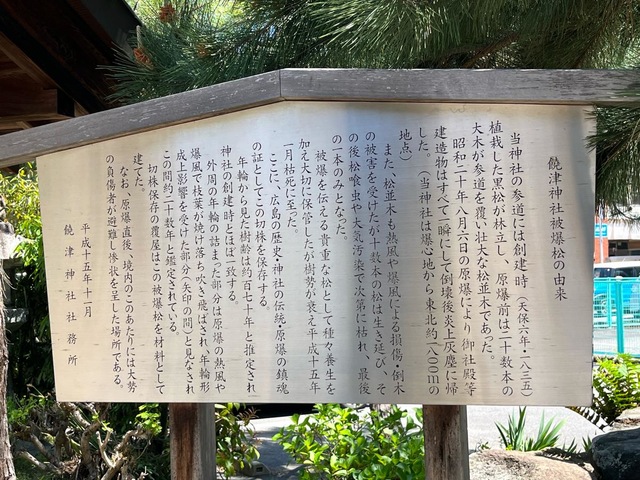 饒津神社被爆松の由来
当神社の参道には創建時（天保六年・一八三五）
植栽した黒松が林立し、原爆前は二十数本の
大木が参道を覆い壮大な松並木であった。
昭和二十年八月六日の原爆により御社殿等
建造物はすべて一瞬にして倒壊後炎上灰塵に帰
した。（当神社は爆心地から東北約一八〇〇mの
地点）
また、松並木も熱風や爆風による損傷・倒木
の被害を受けたが十数本の松は生き延び、そ
の後松喰虫や大気汚染で次第に枯れ、最後
の一本のみとなった。
被爆を伝える貴重な松として種々養生を
加え大切に保管したが樹勢が衰え平成十五年
一月枯死に至った。
ここに、広島の歴史・神社の伝統・原爆の鎮魂
の証としてこの切株を保存する。
年輪から見た樹齢は約百七十年と推定され
神社の創建時とほぼ一致する。
外周の年輪の詰まった部分は原爆の熱風や
爆風で枝葉が焼け落ち吹き飛ばされ年輪形
成上影響を受けた部分（矢印の間）と見なされ
この間約二十数年と鑑定されている。
切株保存の覆屋はこの被爆松を材料として
建てた。
なお、原爆直後、境内のこのあたりには大勢
の負傷者が避難し惨状を呈した場所である。
平成十五年十一月
饒津神社社務所